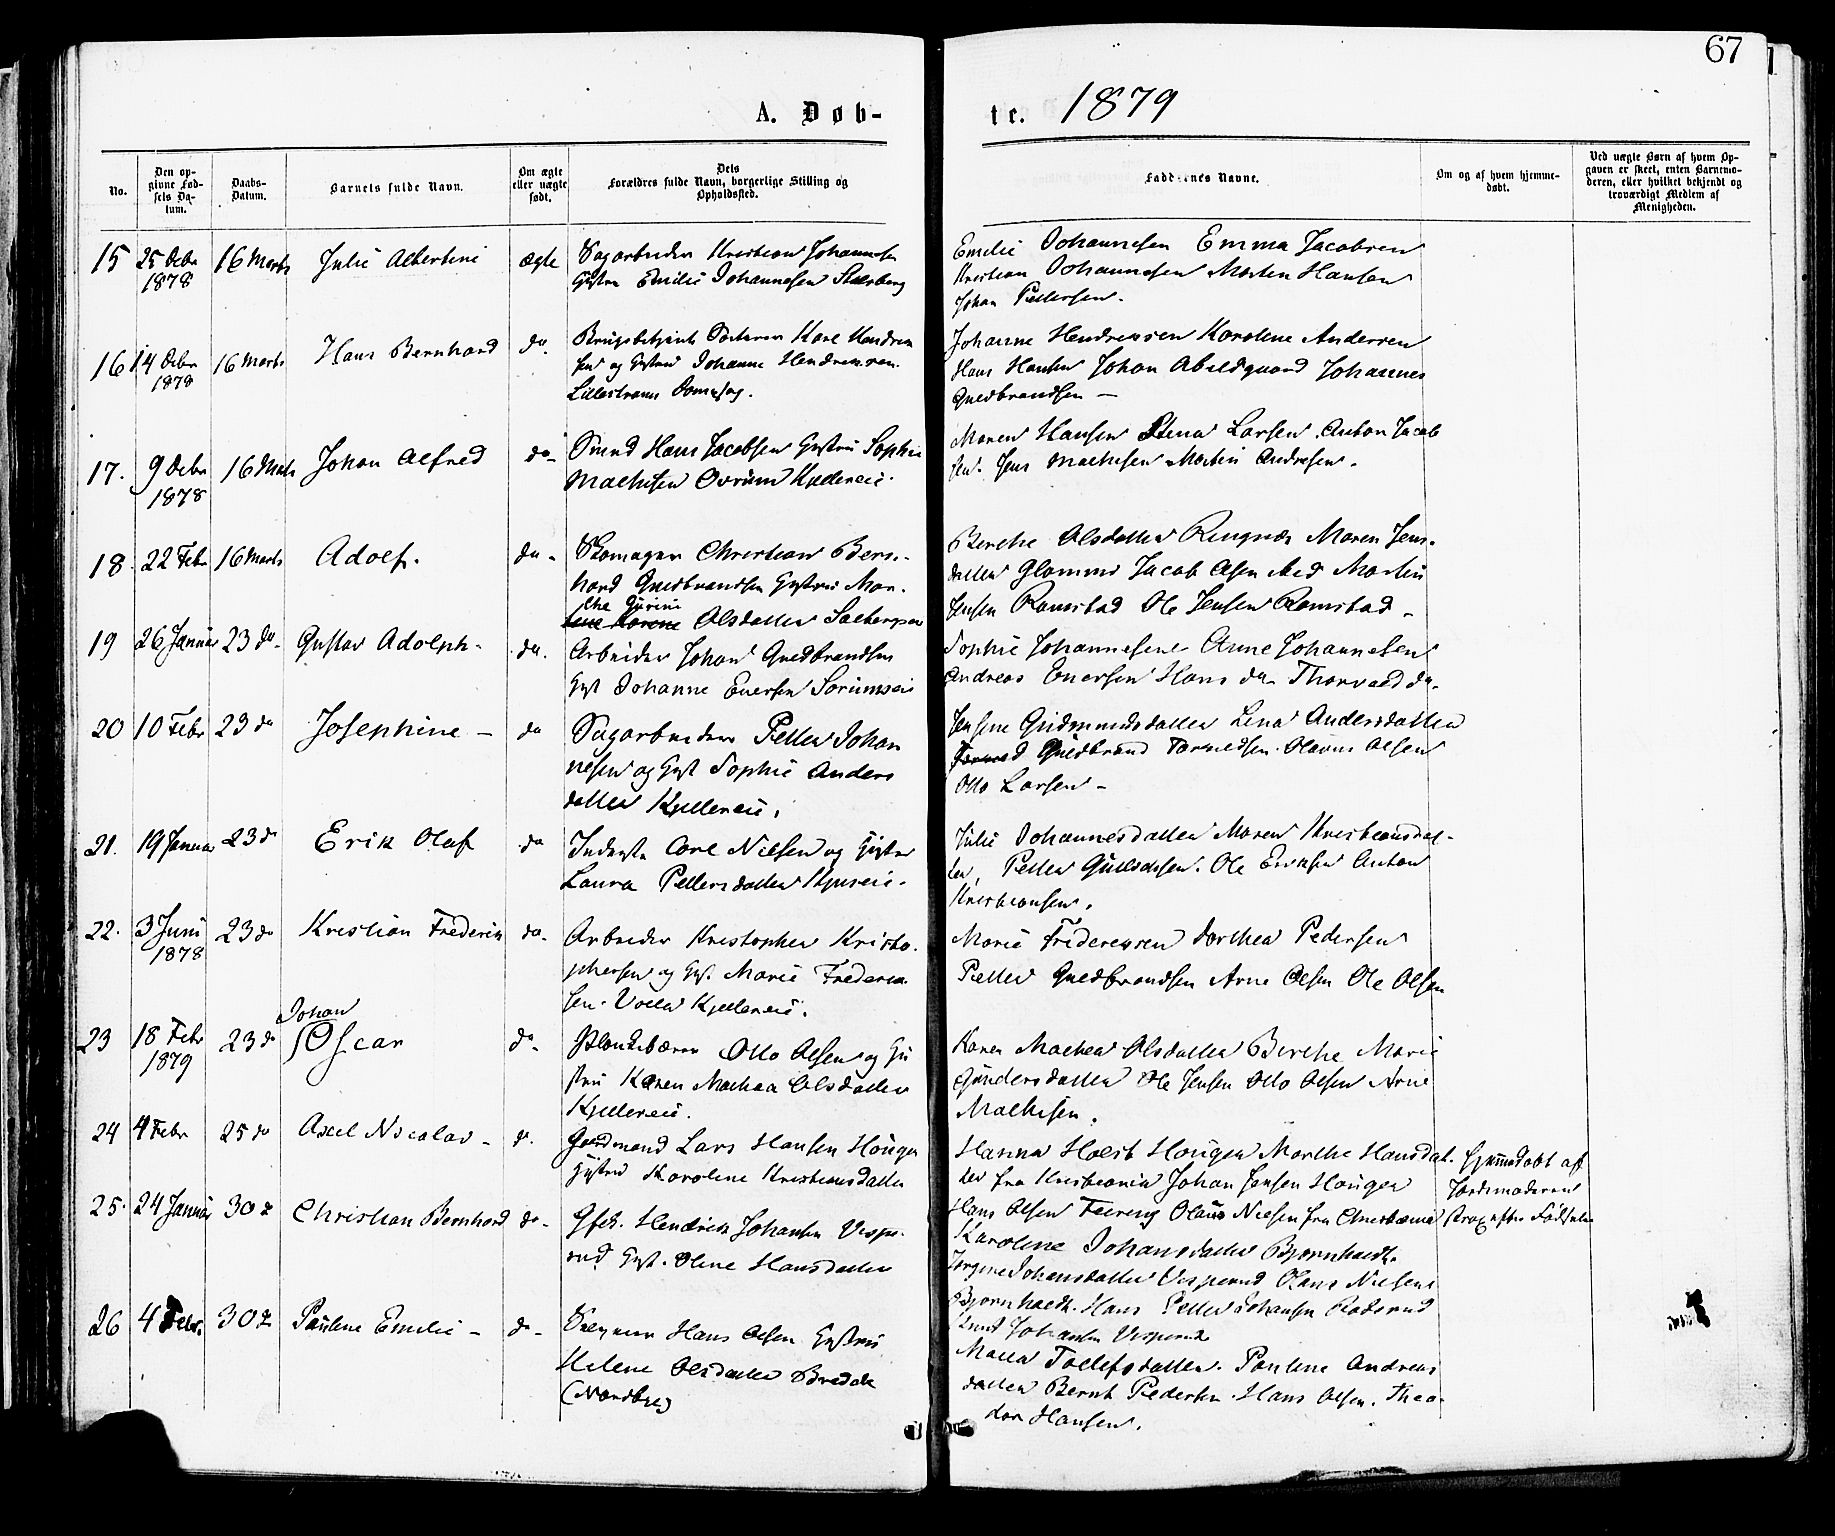 67
A. Døb-
te. 1879
No.
Den op-
givne Fød-
sels Da-
tum.
Daabs-
Datum.
Barnets fulde Navn.
Om ægte
eller uægte
født.
Dets
Forældres fulde Navn, borgerlige Stilling og
Opholdssted.
Faddernes Navne.
Om og af hvem hjemme-
døbt.
Ved uægte Børn af hvem Op-
gaven er skeet, enten Barnemo-
deren, eller hvilket bekjendt og
troværdigt Medlem af
Menigheden.
15 25 Debr 16 Marts Julie Albertine ægte Sagarbeider Kristian Johannesen
1878 Gustru Emilie Johannesen
Emilie Johannesen Emma Jacobsen
Kristian Johannesen Morten Hansen
Johan Pettersen.
16 14 Debr 16 Marts Hans Bernhard do. Karl Hendrik
1878 sen og Gustru Johanne Hendriksen
Lillestrøm
Johanne Hendriksen Karoline Andersen
Hans Hansen Johan Abelsgaard Johannes
Guldbrandsen —
17. 9 Debr 16 Marts Johan Alfred do- Smed Hans Jacobsen Gustru Sophie
1878 Mathisen Ovrum Kjellereie.
Maren Hansen Stina Larsen Anton Jacob
sen. Jens Mathisen Martin Andresen.
18. 22 Febr 16 Marts Adolf. do- Skomager Christian Bern-
hard Guldbrandsen Gustru Mar-
the Gurine
Olsdatter
Berthe Olsdatter Ringnæs Maren Jens-
datter Glommen Jacob Olsen Martin
Jensen Ramstad Ole Jensen Ramstad -
19 26 Januar 23 do- Gustav Adolph- do. Arbeider Johan Guldbrandsen
Gust Johanne Evensen
Sophie Johannesen Anne Johannesen
Andreas Evensen Hans do- Thorvald do-
20 10 Febr 23 do Josephine - do Sagarbeider Petter Johan
nesen og Gust Sophie Anders
datter Kjellereie.
Jensine Gudmundsdatter Lina Andersdatter
Guldbrand Olaves Olsen
Otto Larsen -
21. 19 Januar 23 do Erik Olaf do Inderste Carl Nielsen og Gustru
Laura Pettersdatter
Julie Johannesdatter Maren Kristiansdat-
ter, Petter Ole Eriksen Anton
Kristiansen.
22. 3 Juni 23 do Kristian Frederik do- Arbeider Kristopher Kristo-
1878 phersen og Gust. Marie Frederik
sen Kjellereie.
Marie Frederiksen Dorthea Pedersen
Petter Guldbrandsen Arne Olsen Ole Olsen
23 18 Febr 23 do Johan
Oscar do- Plankebærer Otto Olsen og Gu
1879 stru Karen Mathea Olsdatter
Kjellereie.
Karen Mathea Olsdatter Berthe Marie
Gundersdatter Ole Jensen Otto Olsen Arne
Mathisen.
24 4 Febr 25 do Axel Nicolai - do. Gaardmand Lars Hansen Haugen
Gustru Karoline Kristiansdatter
Hanna Holst Haugen Marthe Hansdat-
ter fra Kristiania Johan Jensen Haugen
Hans Olsen Olaus Nielsen fra Christiania
Hjemmedøbt af
Jordemoderen
strax efter Fødselen
25. 24 Januar 30 do Christian Bernhard do- Gfbr. Hendrik Johansen Vesper-
rud Gust. Oline Hansdatter
Karoline Johansdatter
Jørgine Johansdatter Vesperud Olaus Nielsen
Hans Petter Johansen
Knut Johansen Vesperud
26 4 Febr. 30 do Pauline Emilie - do- Hans Olsen Gustru
Helene Olsdatter
(Nordbye)
Tollefsdatter. Pauline Andreas
datter Bernt Pedersen. Hans Olsen. Theo-
dor Hansen.